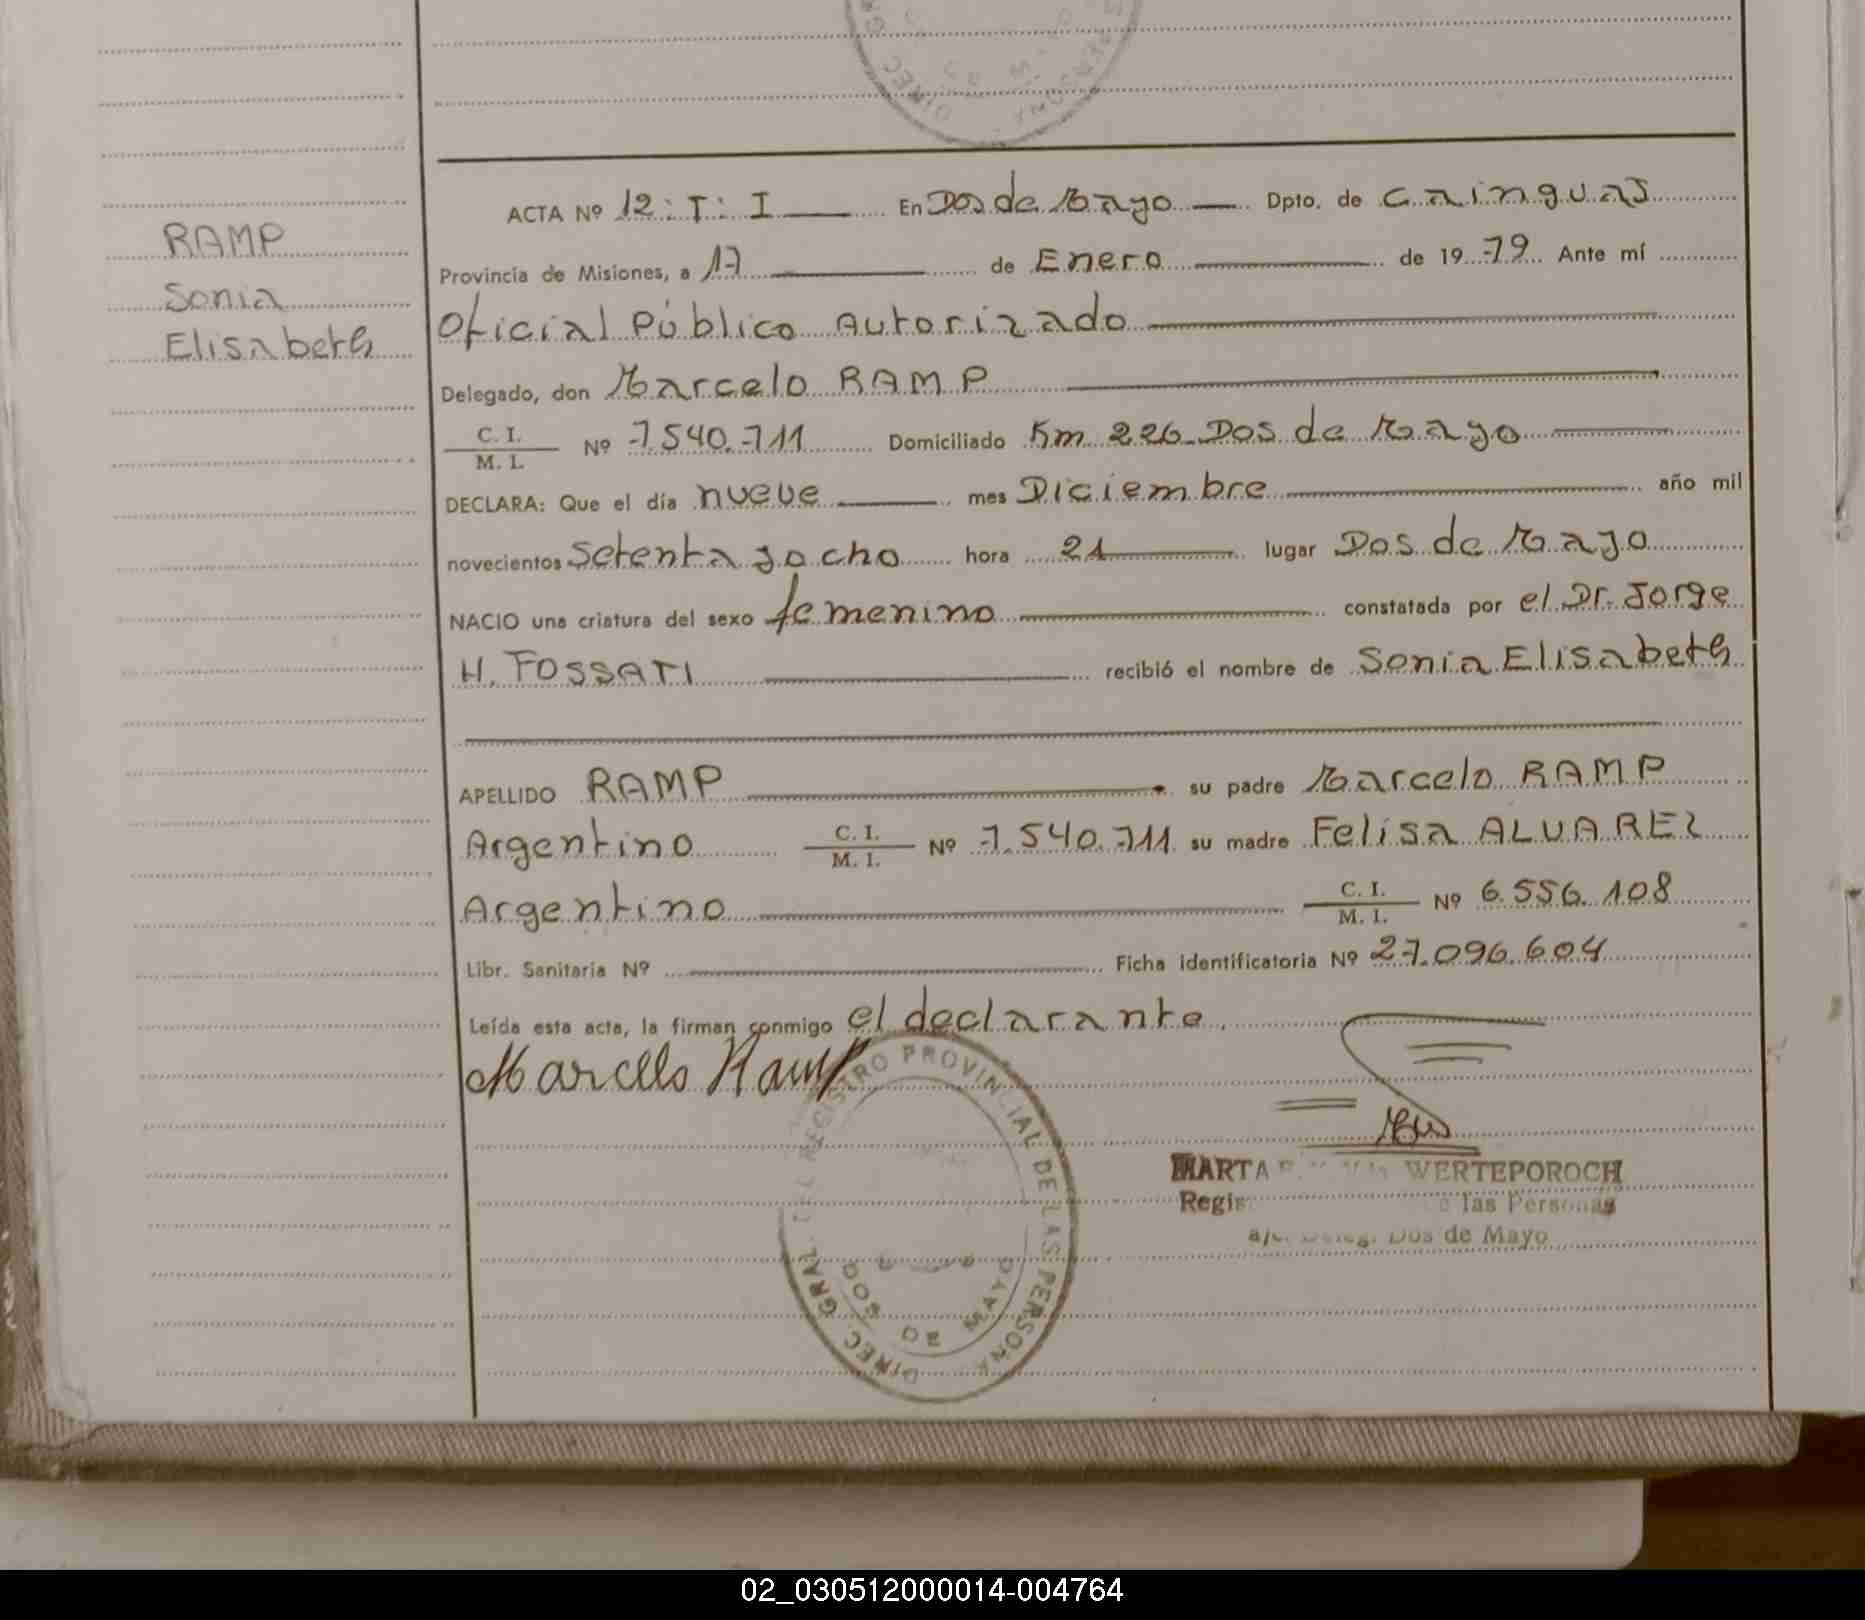 RAMP
Sonia
Elisabeth
ACTA Nº 12: T: I En Dos de Mayo Dpto. de Cainguas
Provincia de Misiones, a 17 de Enero de 1979 Ante mí
Oficial Público Autorizado
Delegado, don Marcelo RAMP
C. I. / M. I. Nº 7.540.711 Domiciliado Km 226 Dos de Mayo
DECLARA: Que el día nueve mes Diciembre año mil
novecientos Setenta y ocho hora 21 lugar Dos de Mayo
NACIO una criatura del sexo femenino constatada por el Dr. Jorge
H. FOSSATI recibió el nombre de Sonia Elisabeth
APELLIDO RAMP su padre Marcelo RAMP
Argentino C. I. / M. I. Nº 7.540.711 su madre Felisa ALVAREZ
Argentino C. I. / M. I. Nº 6.556.108
Libr. Sanitaria Nº Ficha identificatoria Nº 27.096.604
Leída esta acta, la firman conmigo el declarante.
Marcello Ramp
DIREC. GRAL. DEL REGISTRO PROVINCIAL DE LAS PERSONAS
DOS DE MAYO
MARTA WERTEPOROCH
las Personas
Dos de Mayo
02_030512000014-004764